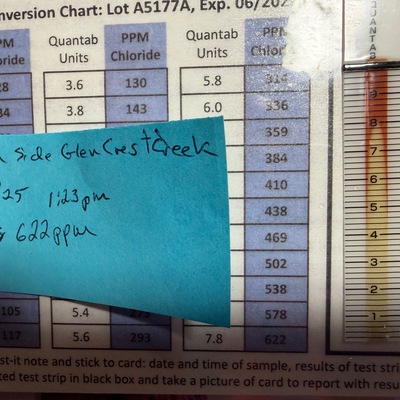 nversion Chart: Lot A5177A, Exp. 06/202
PM Quantab PPM Quantab PPM
oride Units Chloride Units Chlor
28 3.6 130 5.8 314
34 3.8 143 6.0 336
359
384
410
438
469
502
538
105 5.4 273 578
117 5.6 293 7.8 622
Side Glen Crest Creek
25 1:23pm
622ppm
st-it note and stick to card: date and time of sample, results of test stri
ted test strip in black box and take a picture of card to report with resu
QUANTAB
9
8
7
6
5
4
3
2
1